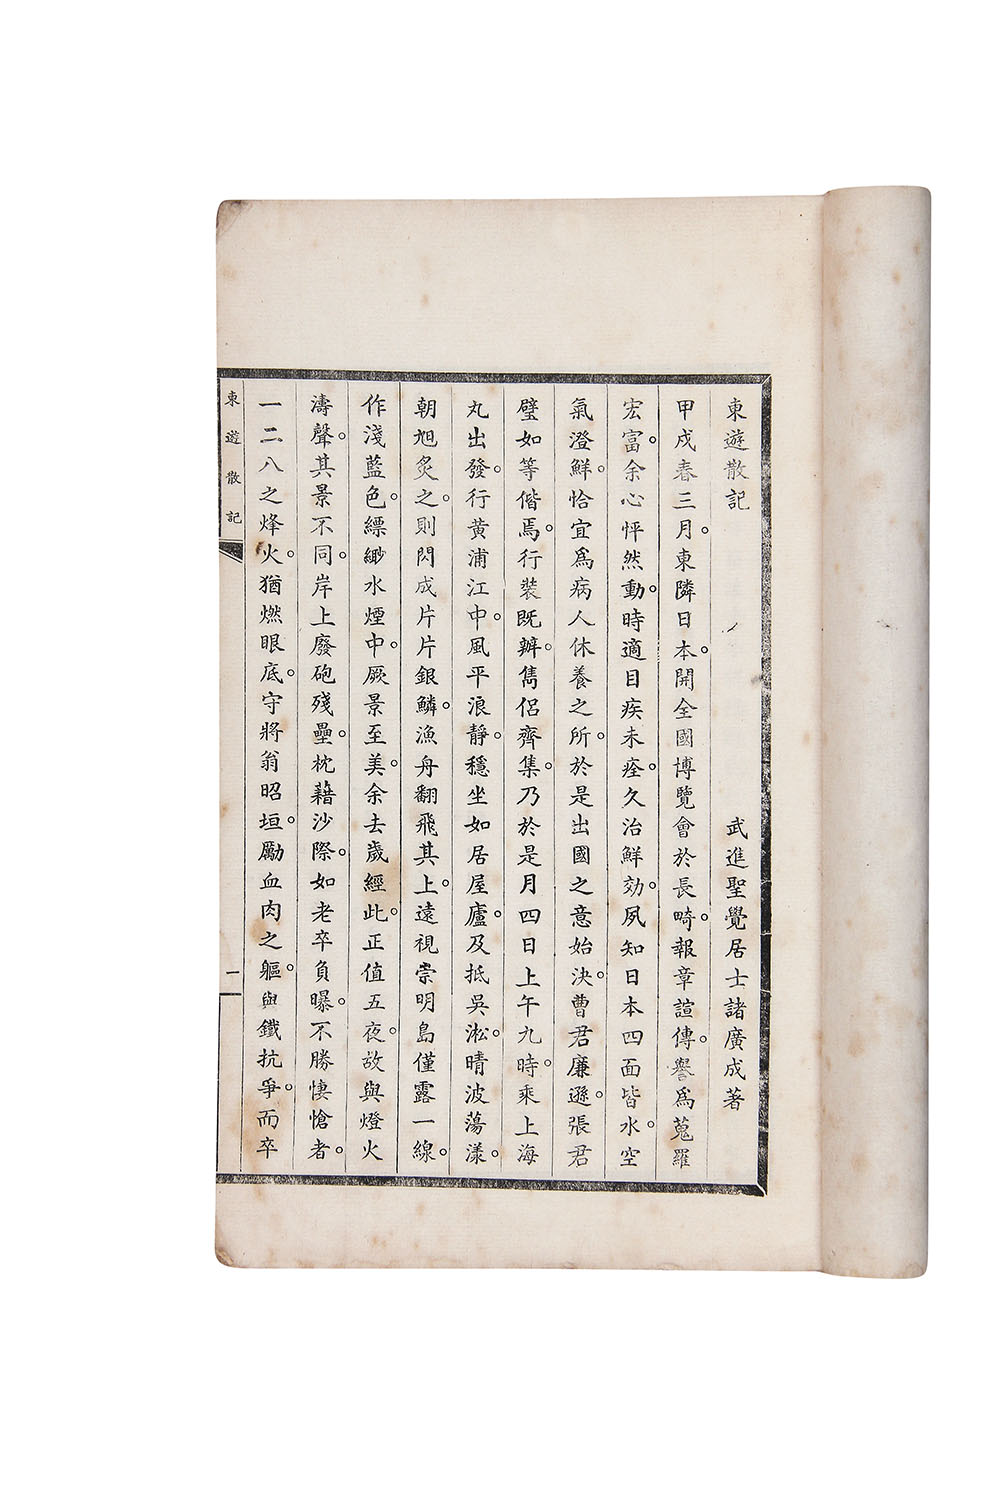 東遊散記 武進聖覺居士諸廣成著
甲戌春三月。東隣日本。開全國博覽會於長畸。報章諠傳。譽爲蒐羅
宏富。余心怦然動。時適目疾未痊。久治鮮効。夙知日本四面皆水。空
氣澄鮮。恰宜爲病人休養之所。於是出國之意始決。曹君廉遜。張君
璧如等偕焉。行裝既辦。儁侶齊集。乃於是月四日上午九時。乘上海
丸出發。行黄浦江中。風平浪靜。穩坐如居屋廬。及抵吳淞。晴波蕩漾。
朝旭炙之。則閃成片片銀鱗。漁舟翻飛其上。遠視崇明島僅露一線。
作淺藍色。縹緲水煙中。厥景至美。余去歲經此。正值五夜。故與燈火
濤聲。其景不同。岸上廢砲殘壘。枕藉沙際。如老卒負曝。不勝悽愴者。
一二八之烽火。猶燃眼底。守將翁昭垣。勵血肉之軀。與鐵抗爭。而卒
東遊散記
一